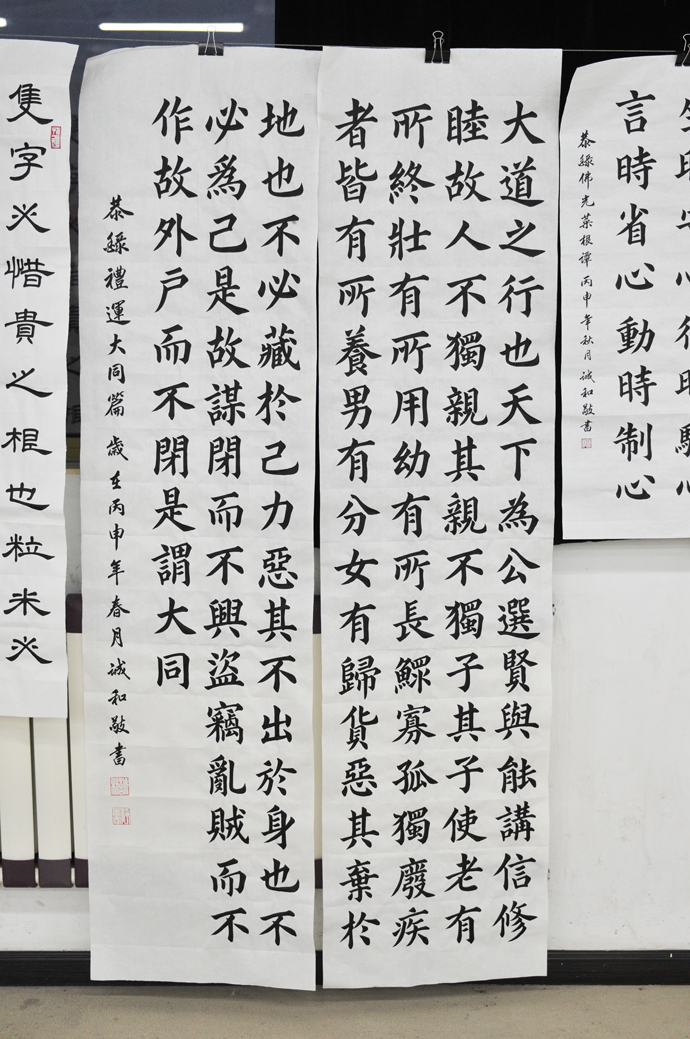 言時省心動時制心
恭錄佛光菜根譚丙申年秋月誠和敬書
大道之行也天下為公選賢與能講信修
睦故人不獨親其親不獨子其子使老有
所終壯有所用幼有所長鰥寡孤獨廢疾
者皆有所養男有分女有歸貨惡其棄於
地也不必藏於己力惡其不出於身也不
必爲己是故謀閉而不興盜竊亂賊而不
作故外户而不閉是謂大同
恭錄禮運大同篇歲在丙申年春月誠和敬書
隻字必惜貴之根也粒米必